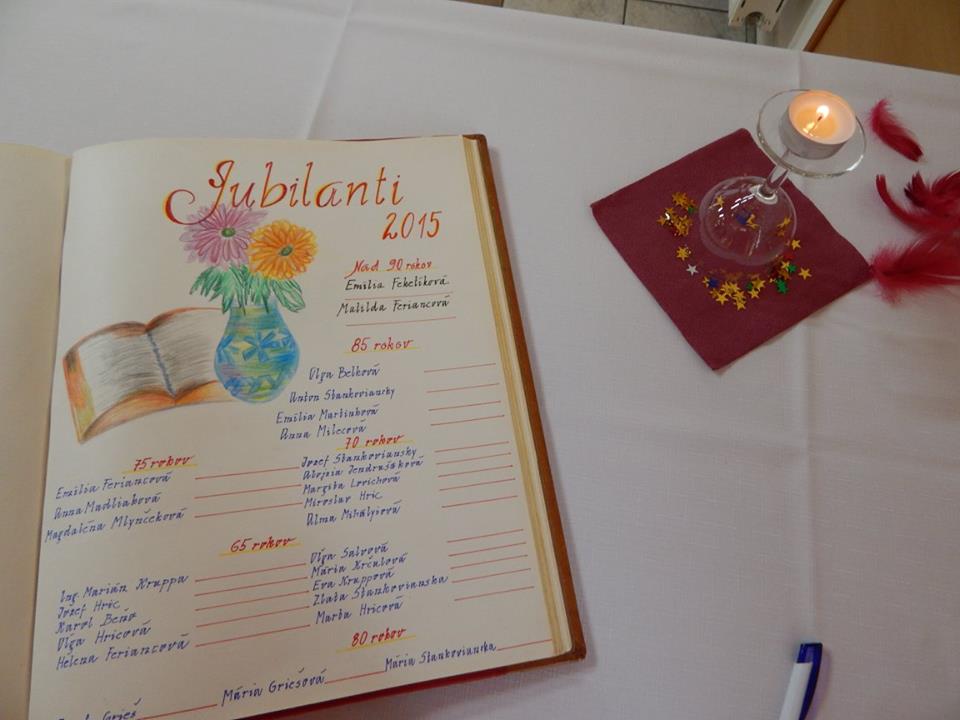 Jubilanti
2015
Nad 90 rokov
Emília Fekelíková
Matilda Feriancová
85 rokov
Oľga Belková
Anton Stankoviansky
Emília Martinková
Anna Milecová
75 rokov
Emília Feriancová
Anna Madliaková
Magdaléna Mlynčeková
70 rokov
Jozef Stankoviansky
Alojzia Jendrušáková
Margita Lovichová
Miroslav Hric
Alma Mihályiová
65 rokov
Ing. Marián Kruppa
Jozef Hric
Karol Beňo
Oľga Hricová
Helena Feriancová
Oľga Salvová
Mária Krčulová
Eva Kruppová
Zlata Stankovianska
Marta Hricová
80 rokov
Grieš
Mária Griešová
Mária Stankovianska